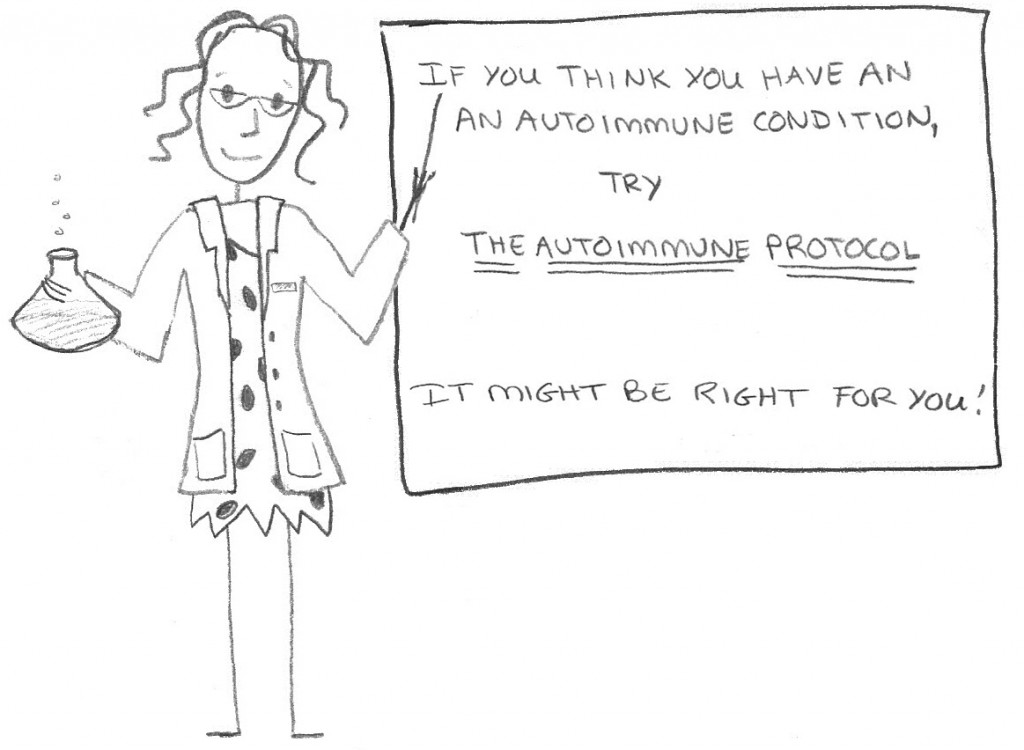 IF YOU THINK YOU HAVE AN
AN AUTOIMMUNE CONDITION,
TRY
THE AUTOIMMUNE PROTOCOL
IT MIGHT BE RIGHT FOR YOU!